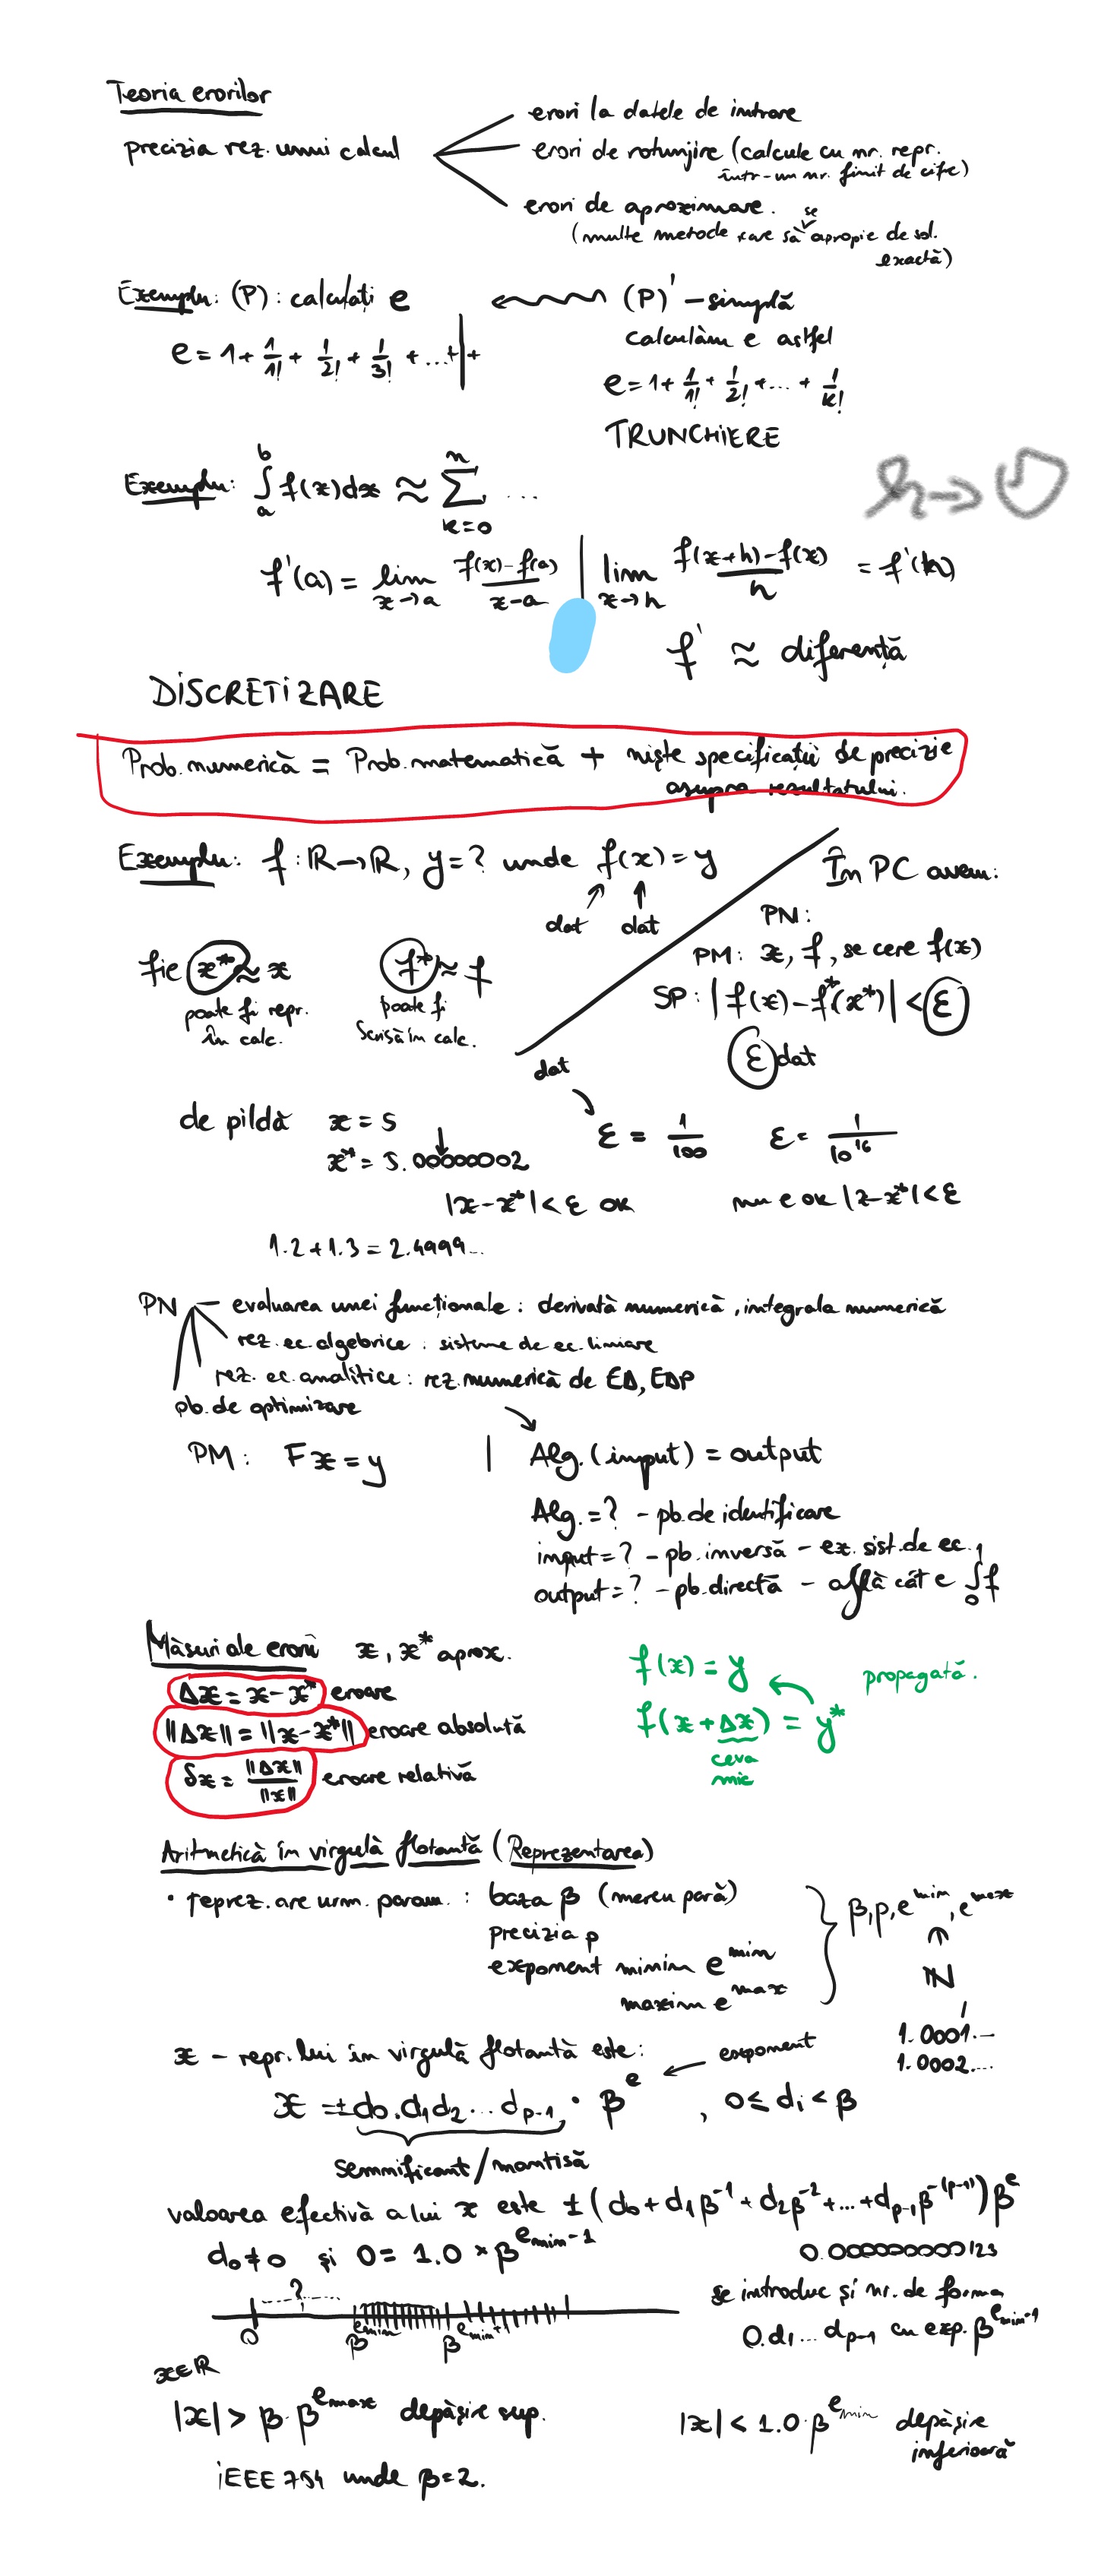 Teoria erorilor
precizia rez. unui calcul
erori la datele de intrare
erori de rotunjire (calcule cu nr. repr.
într-un nr. finit de cifre)
erori de aproximare.
(multe metode care să se apropie de sol.
exactă)
Exemplu: (P): calculați e
(P)' - simplă
calculăm e astfel
e = 1 + 1/1! + 1/2! + 1/3! + ... + | +
e = 1 + 1/1! + 1/2! + ... + 1/k!
TRUNCHIERE
Exemplu: ∫_a^b f(x)dx ≈ Σ_{k=0}^n ...
h → 0
f'(a) = lim_{x→a} (f(x)-f(a))/(x-a) | lim_{x→h} (f(x+h)-f(x))/h = f'(h)
f' ≈ diferență
DISCRETIZARE
Prob. numerică = Prob. matematică + niște specificații de precizie
asupra rezultatului.
Exemplu: f: ℝ→ℝ, y = ? unde f(x) = y
dat dat
În PC avem:
PN:
PM: x, f, se cere f(x)
SP: |f(x) - f*(x*)| < ε
ε dat
fie x* ≈ x f* ≈ f
poate fi repr.
în calc.
poate fi
scrisă în calc.
dat
de pildă x = 5
x* = 5.00000002
ε = 1/100 ε = 1/10^16
|x-x*| < ε ok nu e ok |x-x*| < ε
1.2 + 1.3 = 2.4999...
PN - evaluarea unei funcționale: derivată numerică, integrala numerică
rez. ec. algebrice: sisteme de ec. liniare
rez. ec. analitice: rez. numerică de ED, EDP
pb. de optimizare
PM: Fx = y | Alg. (input) = output
Alg. = ? - pb. de identificare
input = ? - pb. inversă - ex. sist. de ec.
output = ? - pb. directă - află cât e ∫_0^1 f
Măsuri ale erorii x, x* aprox.
Δx = x - x* eroare
||Δx|| = ||x-x*|| eroare absolută
δx = ||Δx||/||x|| eroare relativă
f(x) = y
propagată.
f(x + Δx) = y*
ceva
mic
Aritmetică în virgulă flotantă (Reprezentarea)
• reprez. are urm. param.: baza β (mereu pară)
precizia p
exponent minim e^min
maxim e^max
β, p, e^min, e^max
∩
ℕ
1.0001...
1.0002...
x - repr. lui în virgulă flotantă este:
exponent
x = ± d0.d1d2...dp-1 · β^e, 0 ≤ di < β
semnificant/mantisă
valoarea efectivă a lui x este ±(d0 + d1β^-1 + d2β^-2 + ... + dp-1β^-(p-1))β^e
d0 ≠ 0 și 0 = 1.0 × β^{emin-1}
0.000000000123
?
0 β^{emin} β^{emin+1}
se introduc și nr. de forma
0.d1...dp-1 cu exp. β^{emin-1}
x∈ℝ
|x| > β·β^{emax} depășire sup.
|x| < 1.0·β^{emin} depășire
inferioară
iEEE 754 unde β=2.